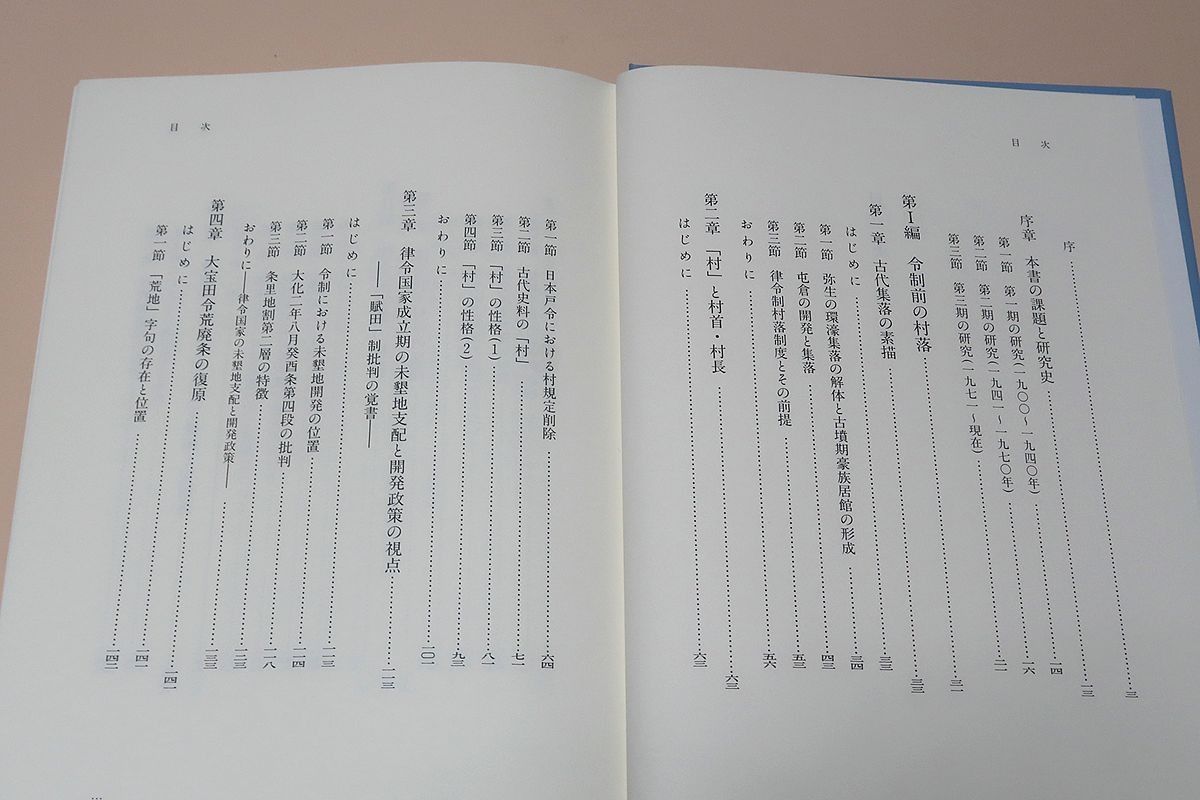 目次
序 三
序章 本書の課題と研究史 一三
第一節 第一期の研究(一九〇〇~一九四〇年) 一四
第二節 第二期の研究(一九四一~一九七〇年) 一六
第三節 第三期の研究(一九七一~現在) 二一
第Ⅰ編 令制前の村落 三一
第一章 古代集落の素描 三三
はじめに 三三
第一節 弥生の環濠集落の解体と古墳期豪族居館の形成 三四
第二節 屯倉の開発と集落 四三
第三節 律令制村落制度とその前提 五三
おわりに 五六
第二章 「村」と村首・村長 六三
はじめに 六三
目次
第一節 日本戸令における村規定削除 六四
第二節 古代史料の「村」 七一
第三節 「村」の性格(1) 八一
第四節 「村」の性格(2) 九三
おわりに 一〇一
第三章 律令国家成立期の未墾地支配と開発政策の視点 一一三
――「賦田」制批判の覚書――
はじめに 一一三
第一節 令制における未墾地開発の位置 一一四
第二節 大化二年八月癸酉条第四段の批判 一一八
第三節 条里地割第二層の特徴 一二三
おわりに――律令国家の未墾地支配と開発政策―― 一三三
第四章 大宝田令荒廃条の復原 一四一
はじめに 一四一
第一節 「荒地」字句の存在と位置 一四二